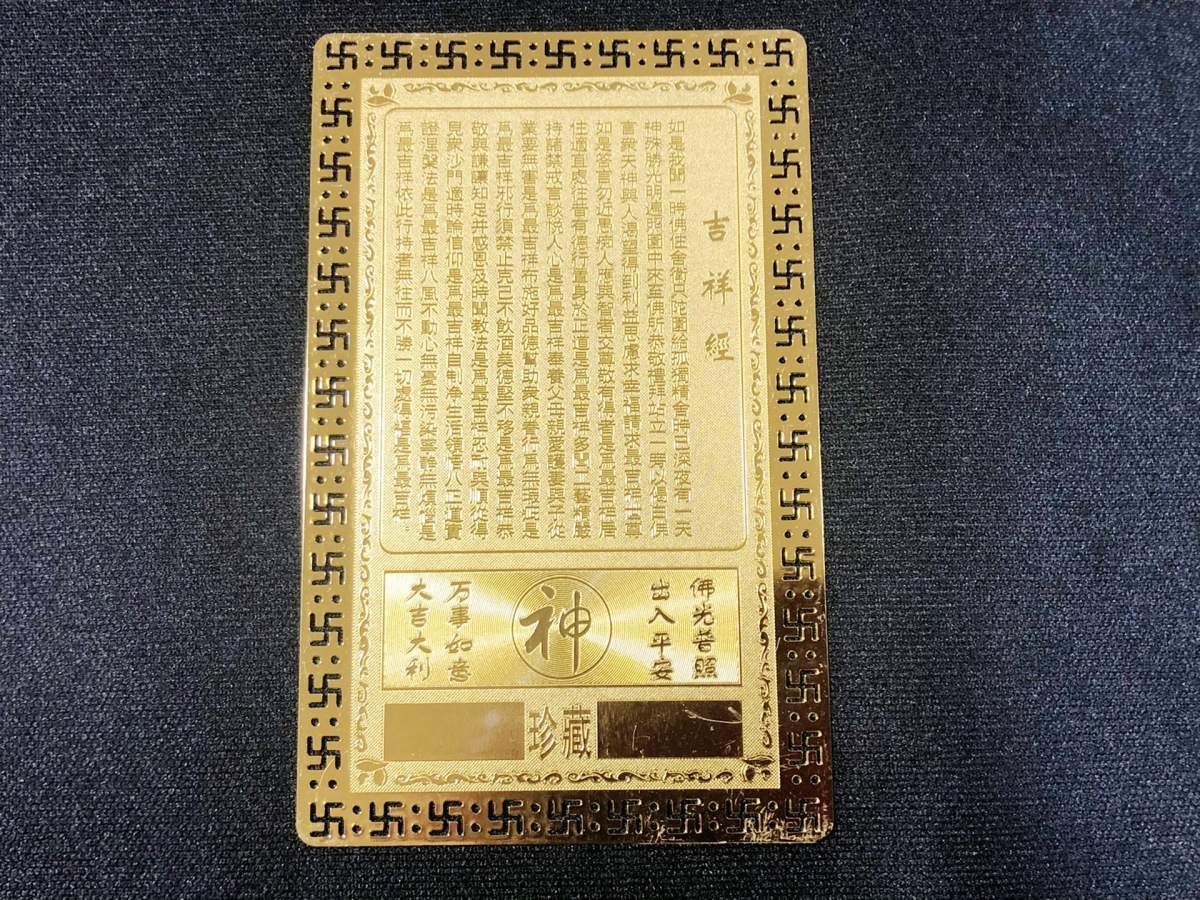 吉祥經
如是我聞一時佛住舍衛只陀園給孤獨精舍時已深夜有一天
神殊勝光明遍照園中來至佛所恭敬禮拜站立一旁以偈言佛
言衆天神與人渴望得到利益思慮求幸祥請求最吉祥世尊
如是答言勿近愚痴人應與智者交尊敬有得者是爲最吉祥居
住適宜處往昔有德行置身於正道是爲最吉祥多聞工藝精嚴
持諸禁戒言談悅人心是爲最吉祥奉養父母親愛護妻與子從
業要無害是爲最吉祥布施好品德幫助衆親眷行爲無瑕疵是
爲最吉祥邪行須禁止克己不飲酒美德堅不移是爲最吉祥恭
敬與謙讓知足并感恩及時聞教法是爲最吉祥忍耐與順從得
見衆沙門適時論信仰是爲最吉祥自制净生活領悟八正道實
證涅槃法是爲最吉祥八風不動心無憂無污染寧靜無煩惱是
爲最吉祥依此行持者無往而不勝一切處得福是爲最吉祥
佛光普照
出入平安
神
万事如意
大吉大利
珍藏